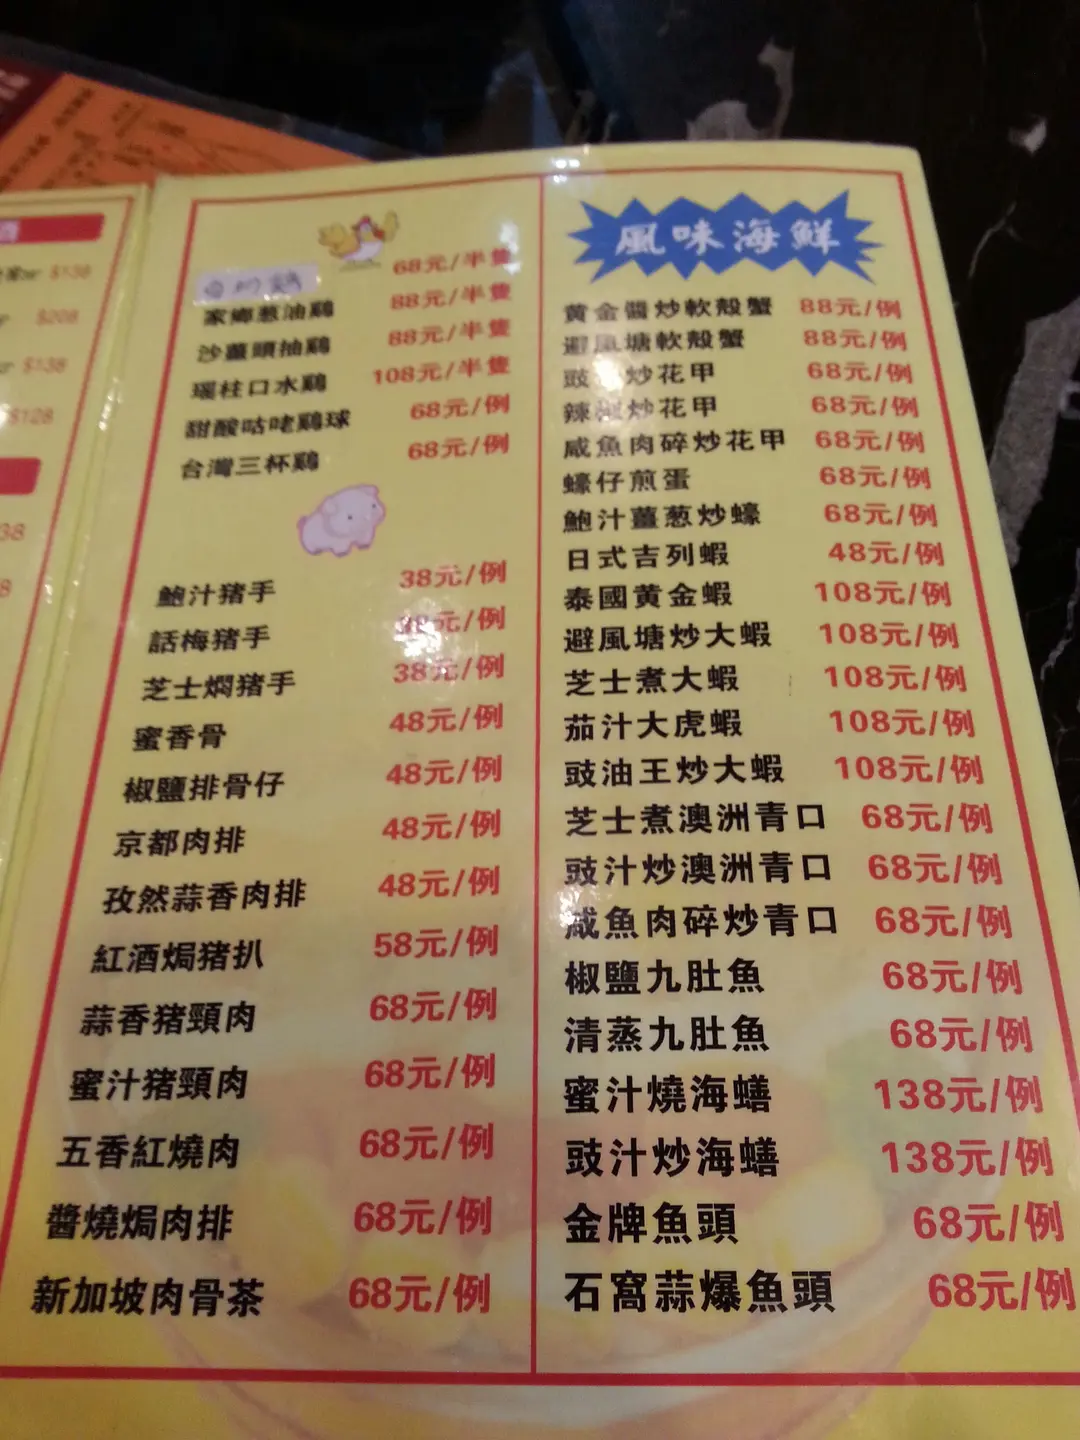 $138
$208
$138
$128
68元/半隻
家鄉葱油鷄 88元/半隻
沙薑頭抽鷄 88元/半隻
瑶柱口水鷄 108元/半隻
甜酸咕咾鷄球 68元/例
台灣三杯鷄 68元/例
鮑汁猪手 38元/例
話梅猪手 38元/例
芝士燜猪手 38元/例
蜜香骨 48元/例
椒鹽排骨仔 48元/例
京都肉排 48元/例
孜然蒜香肉排 48元/例
紅酒焗猪扒 58元/例
蒜香猪頸肉 68元/例
蜜汁猪頸肉 68元/例
五香紅燒肉 68元/例
醬燒焗肉排 68元/例
新加坡肉骨茶 68元/例
風味海鮮
黄金醬炒軟殻蟹 88元/例
避風塘軟殻蟹 88元/例
豉 炒花甲 68元/例
辣 炒花甲 68元/例
咸魚肉碎炒花甲 68元/例
蠔仔煎蛋 68元/例
鮑汁薑葱炒蠔 68元/例
日式吉列蝦 48元/例
泰國黄金蝦 108元/例
避風塘炒大蝦 108元/例
芝士煮大蝦 108元/例
茄汁大虎蝦 108元/例
豉油王炒大蝦 108元/例
芝士煮澳洲青口 68元/例
豉汁炒澳洲青口 68元/例
咸魚肉碎炒青口 68元/例
椒鹽九肚魚 68元/例
清蒸九肚魚 68元/例
蜜汁燒海蟮 138元/例
豉汁炒海蟮 138元/例
金牌魚頭 68元/例
石窩蒜爆魚頭 68元/例